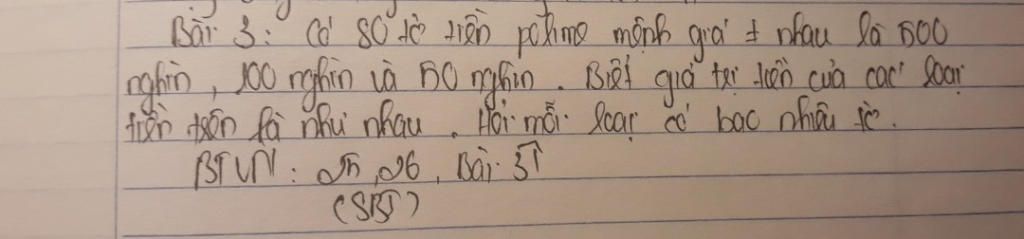 Bài 3: Có 80 tờ tiền polime mệnh giá ≠ nhau là 500
nghìn, 100 nghìn và 50 nghìn. Biết giá trị tiền của các loại
tiền trên là như nhau. Hỏi mỗi loại có bao nhiêu tờ.
BTVN: 25, 26, Bài 3↑
(SBT)